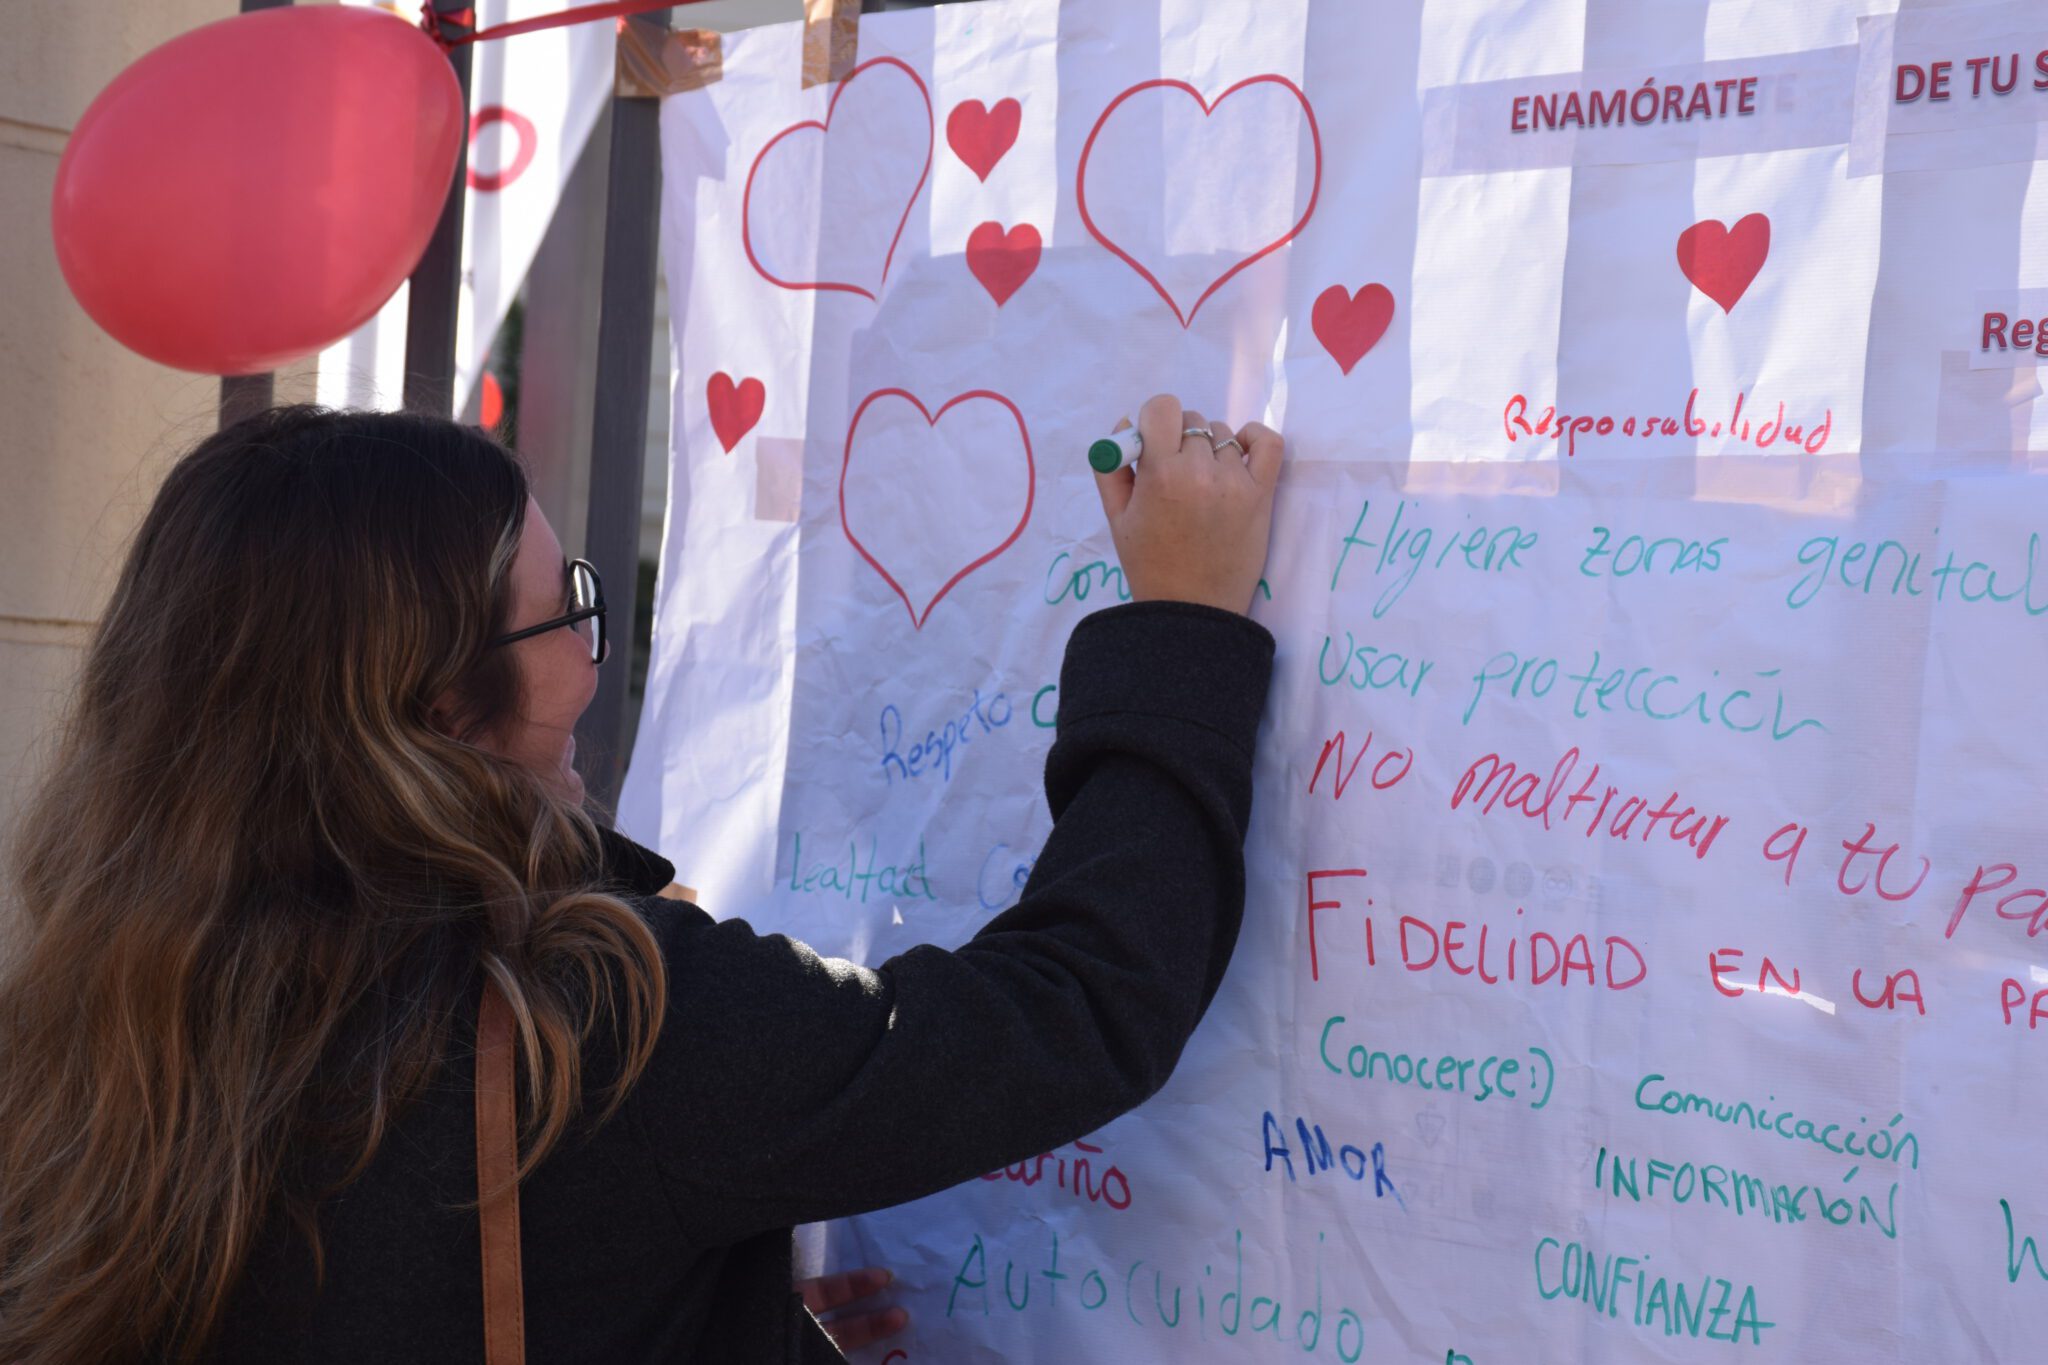 ENAMÓRATE DE TU S
Reg
Responsabilidad
Higiene zonas genital
Usar protección
Respeto
No maltratar a tu pa
Lealtad
FIDELIDAD EN LA PA
Conocerse:) Comunicación
cariño AMOR INFORMACIÓN
Autocuidado CONFIANZA